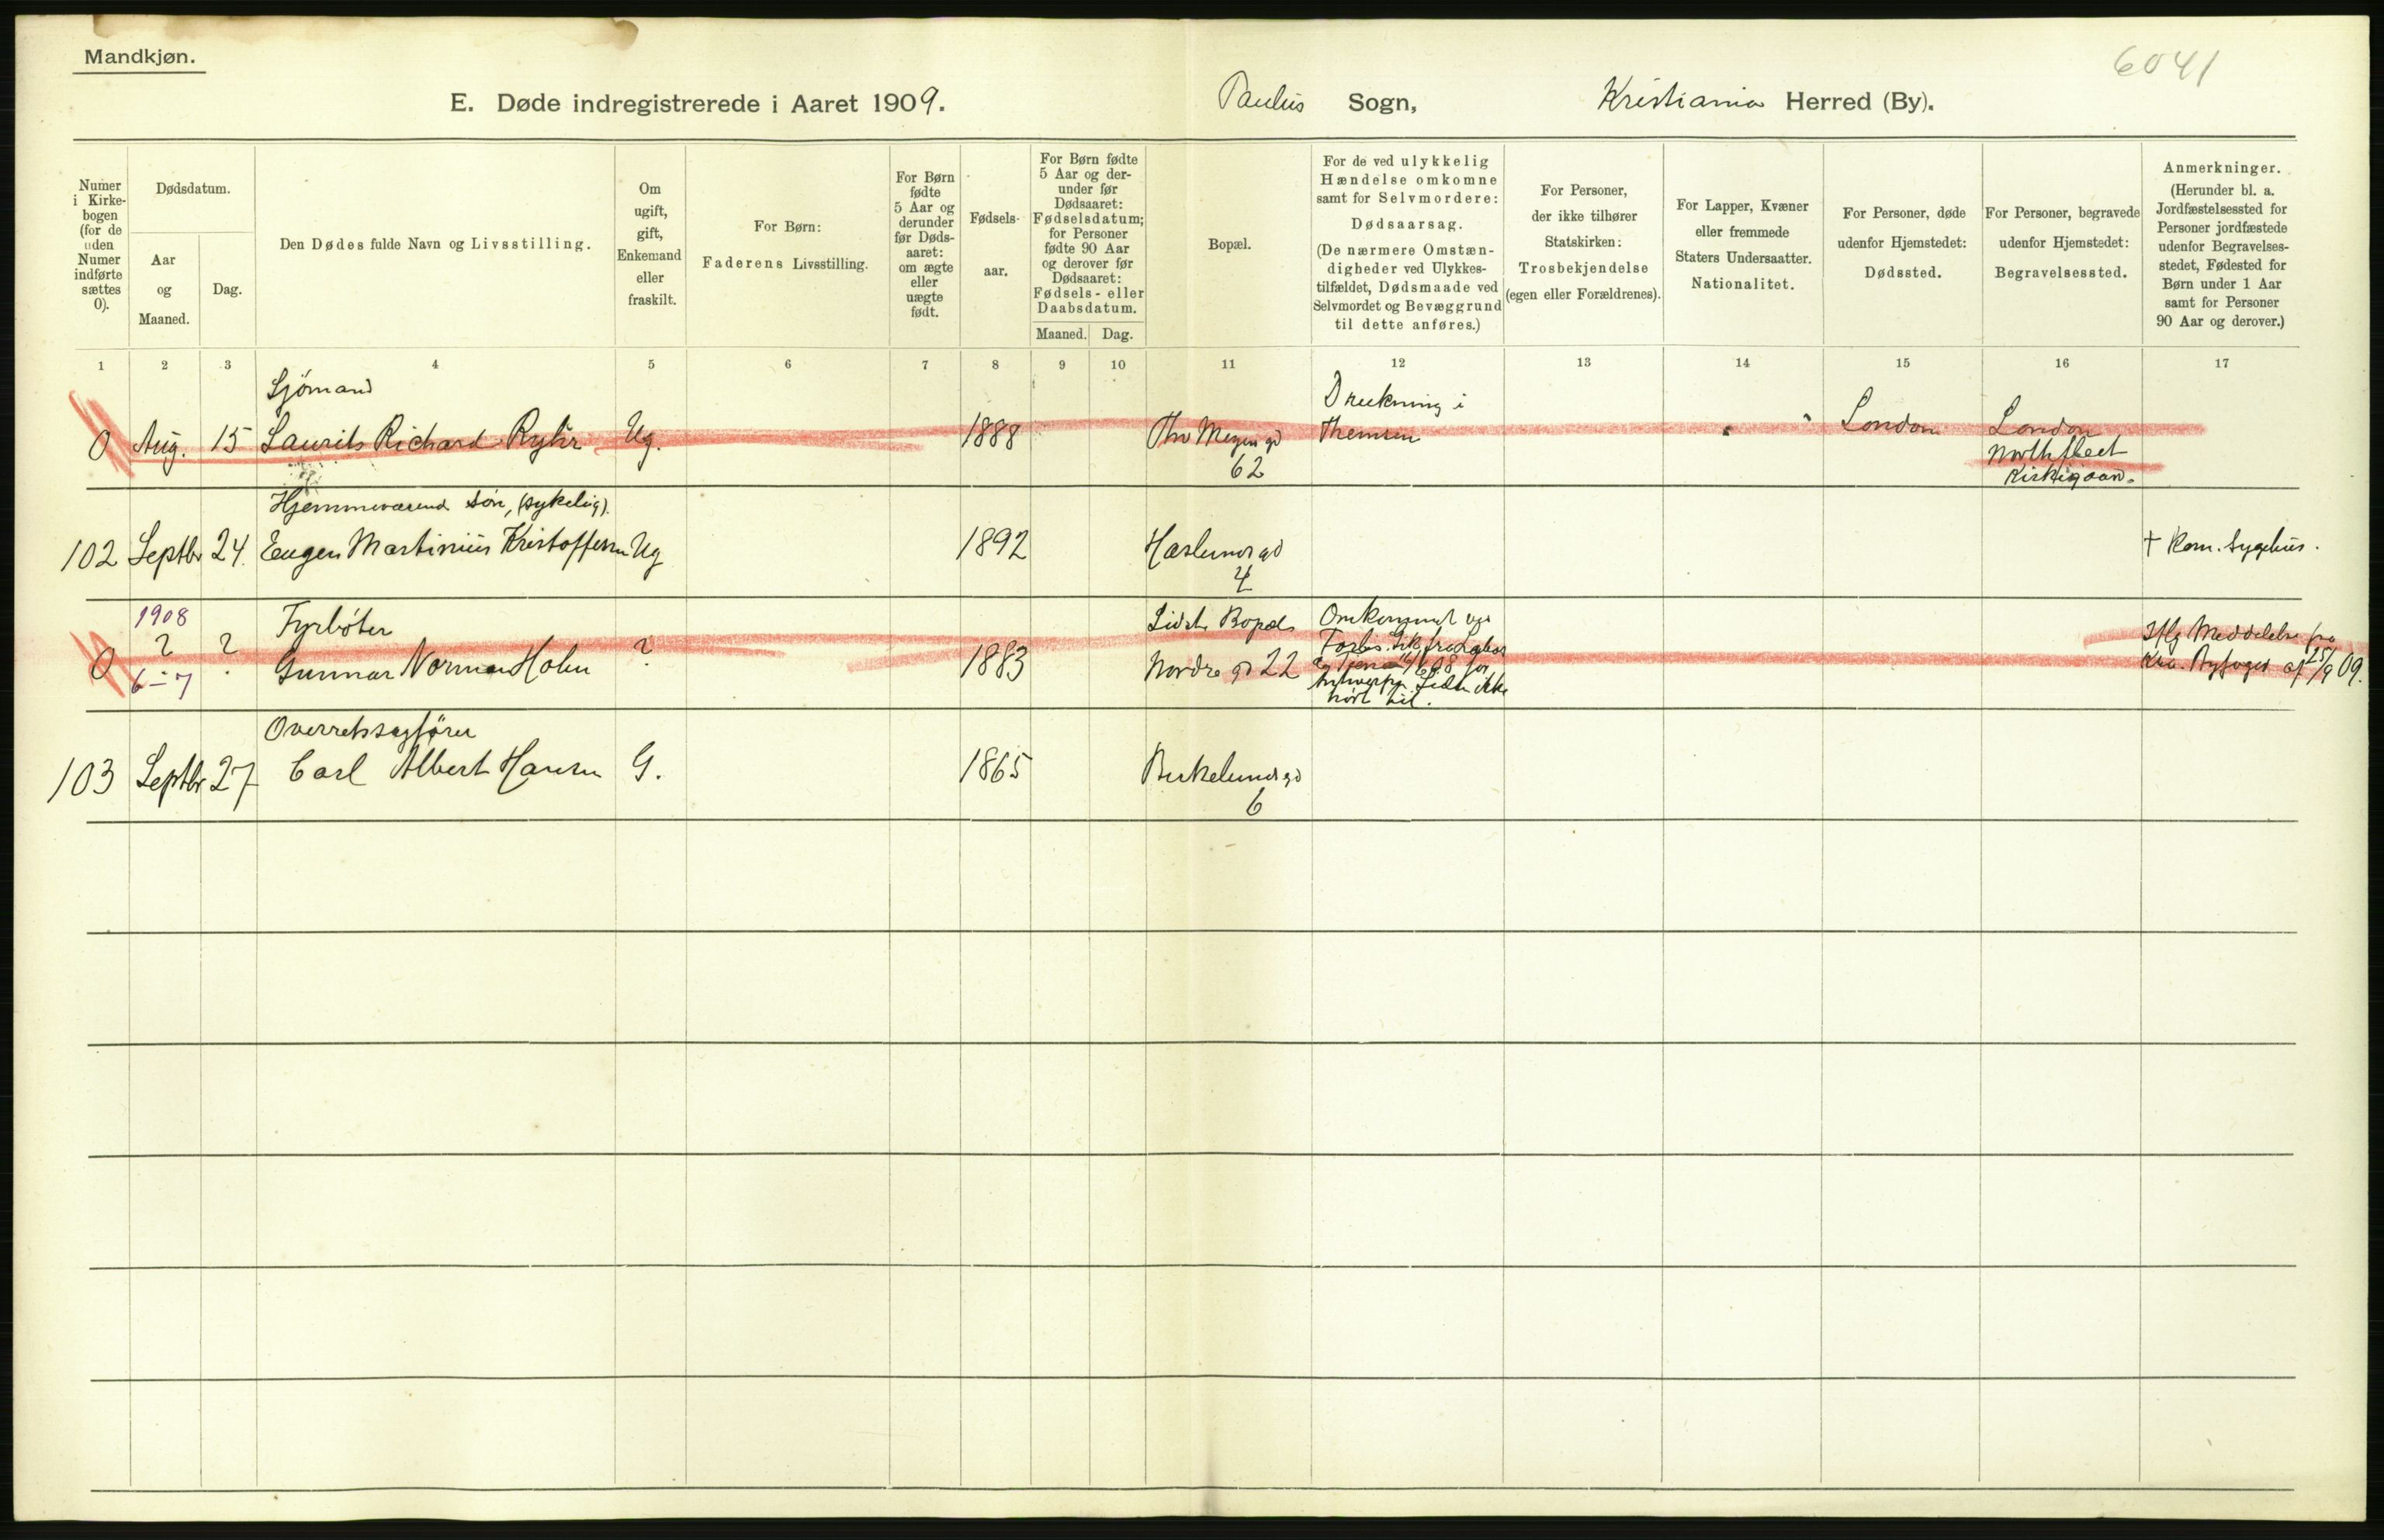 Mandkjøn.
6041
E. Døde indregistrerede i Aaret 1909.
Paulus Sogn, Kristiania Herred (By).
Numer
i Kirke-
bogen
(for de
uden
Numer
indførte
sættes
0).
Dødsdatum.
Aar
og
Maaned.
Dag.
Den Dødes fulde Navn og Livsstilling.
Om
ugift,
gift,
Enkemand
eller
fraskilt.
For Børn:
Faderens Livsstilling.
For Børn
fødte
5 Aar og
derunder
før Døds-
aaret:
om ægte
eller
uægte
født.
Fødsels-
aar.
For Børn fødte
5 Aar og der-
under før
Dødsaaret:
Fødselsdatum;
for Personer
fødte 90 Aar
og derover før
Dødsaaret:
Fødsels- eller
Daabsdatum.
Maaned. Dag.
Bopæl.
For de ved ulykkelig
Hændelse omkomne
samt for Selvmordere:
Dødsaarsag.
(De nærmere Omstæn-
digheder ved Ulykkes-
tilfældet, Dødsmaade ved
Selvmordet og Bevæggrund
til dette anføres.)
For Personer,
der ikke tilhører
Statskirken:
Trosbekjendelse
(egen eller Forældrenes).
For Lapper, Kvæner
eller fremmede
Staters Undersaatter.
Nationalitet.
For Personer, døde
udenfor Hjemstedet:
Dødssted.
For Personer, begravede
udenfor Hjemstedet:
Begravelsessted.
Anmerkninger.
(Herunder bl. a.
Jordfæstelsessted for
Personer jordfæstede
udenfor Begravelses-
stedet, Fødested for
Børn under 1 Aar
samt for Personer
90 Aar og derover.)
1 2 3 4 5 6 7 8 9 10 11 12 13 14 15 16 17
Sjömand
Drukning i
0 Aug. 15 Laurits Richard Ug. 1888 Thv Meyers gd Themsen London London
62
Northfleet
Kirkegaard.
Hjemmeværend Søn, (sykelig).
102 Septbr 24. Eugen Martinius Kristoffersen Ug 1892 Haslunds gd † Kom. Sygehus.
4
1908
Fyrböter
Sidste Bopæl
Omkommet ved
? ?
Iflg Meddelelse fra
0 Gunnar Norman Holm ? 1883 Nordre gd 22
Kra. Byfoged af 25/9 09.
6-7
Antwerpen. Siden ikke
hört til.
Overretssagförer
103 Septbr 27 Carl Albert Hansen G. 1865 Birkelunds gd
6